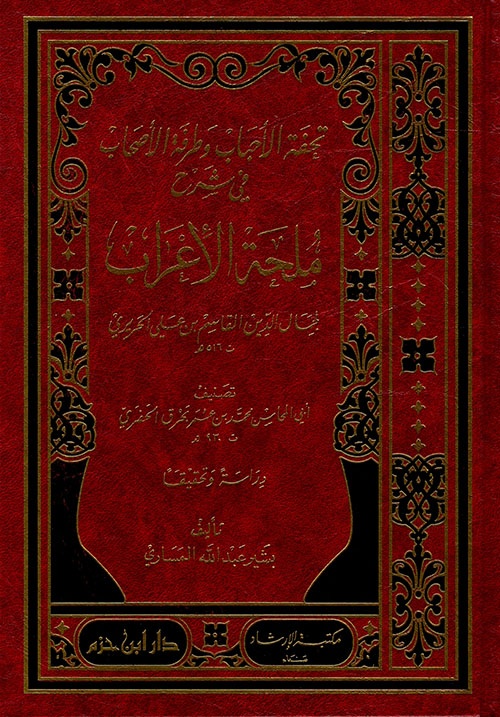 تحفة الأحباب وطرفة الأصحاب
في شرح
ملحة الأعراب
جمال الدين القاسم بن علي الحريري
ت ٥١٦ هـ
تصنيف
أبي المحاسن محمد بن عمر بحرق الحضرمي
ت ٩٣٠ هـ
دراسة وتحقيقا
تأليف
بشير عبد الله المساري
مكتبة الإرشاد
صنعاء
دار ابن حزم